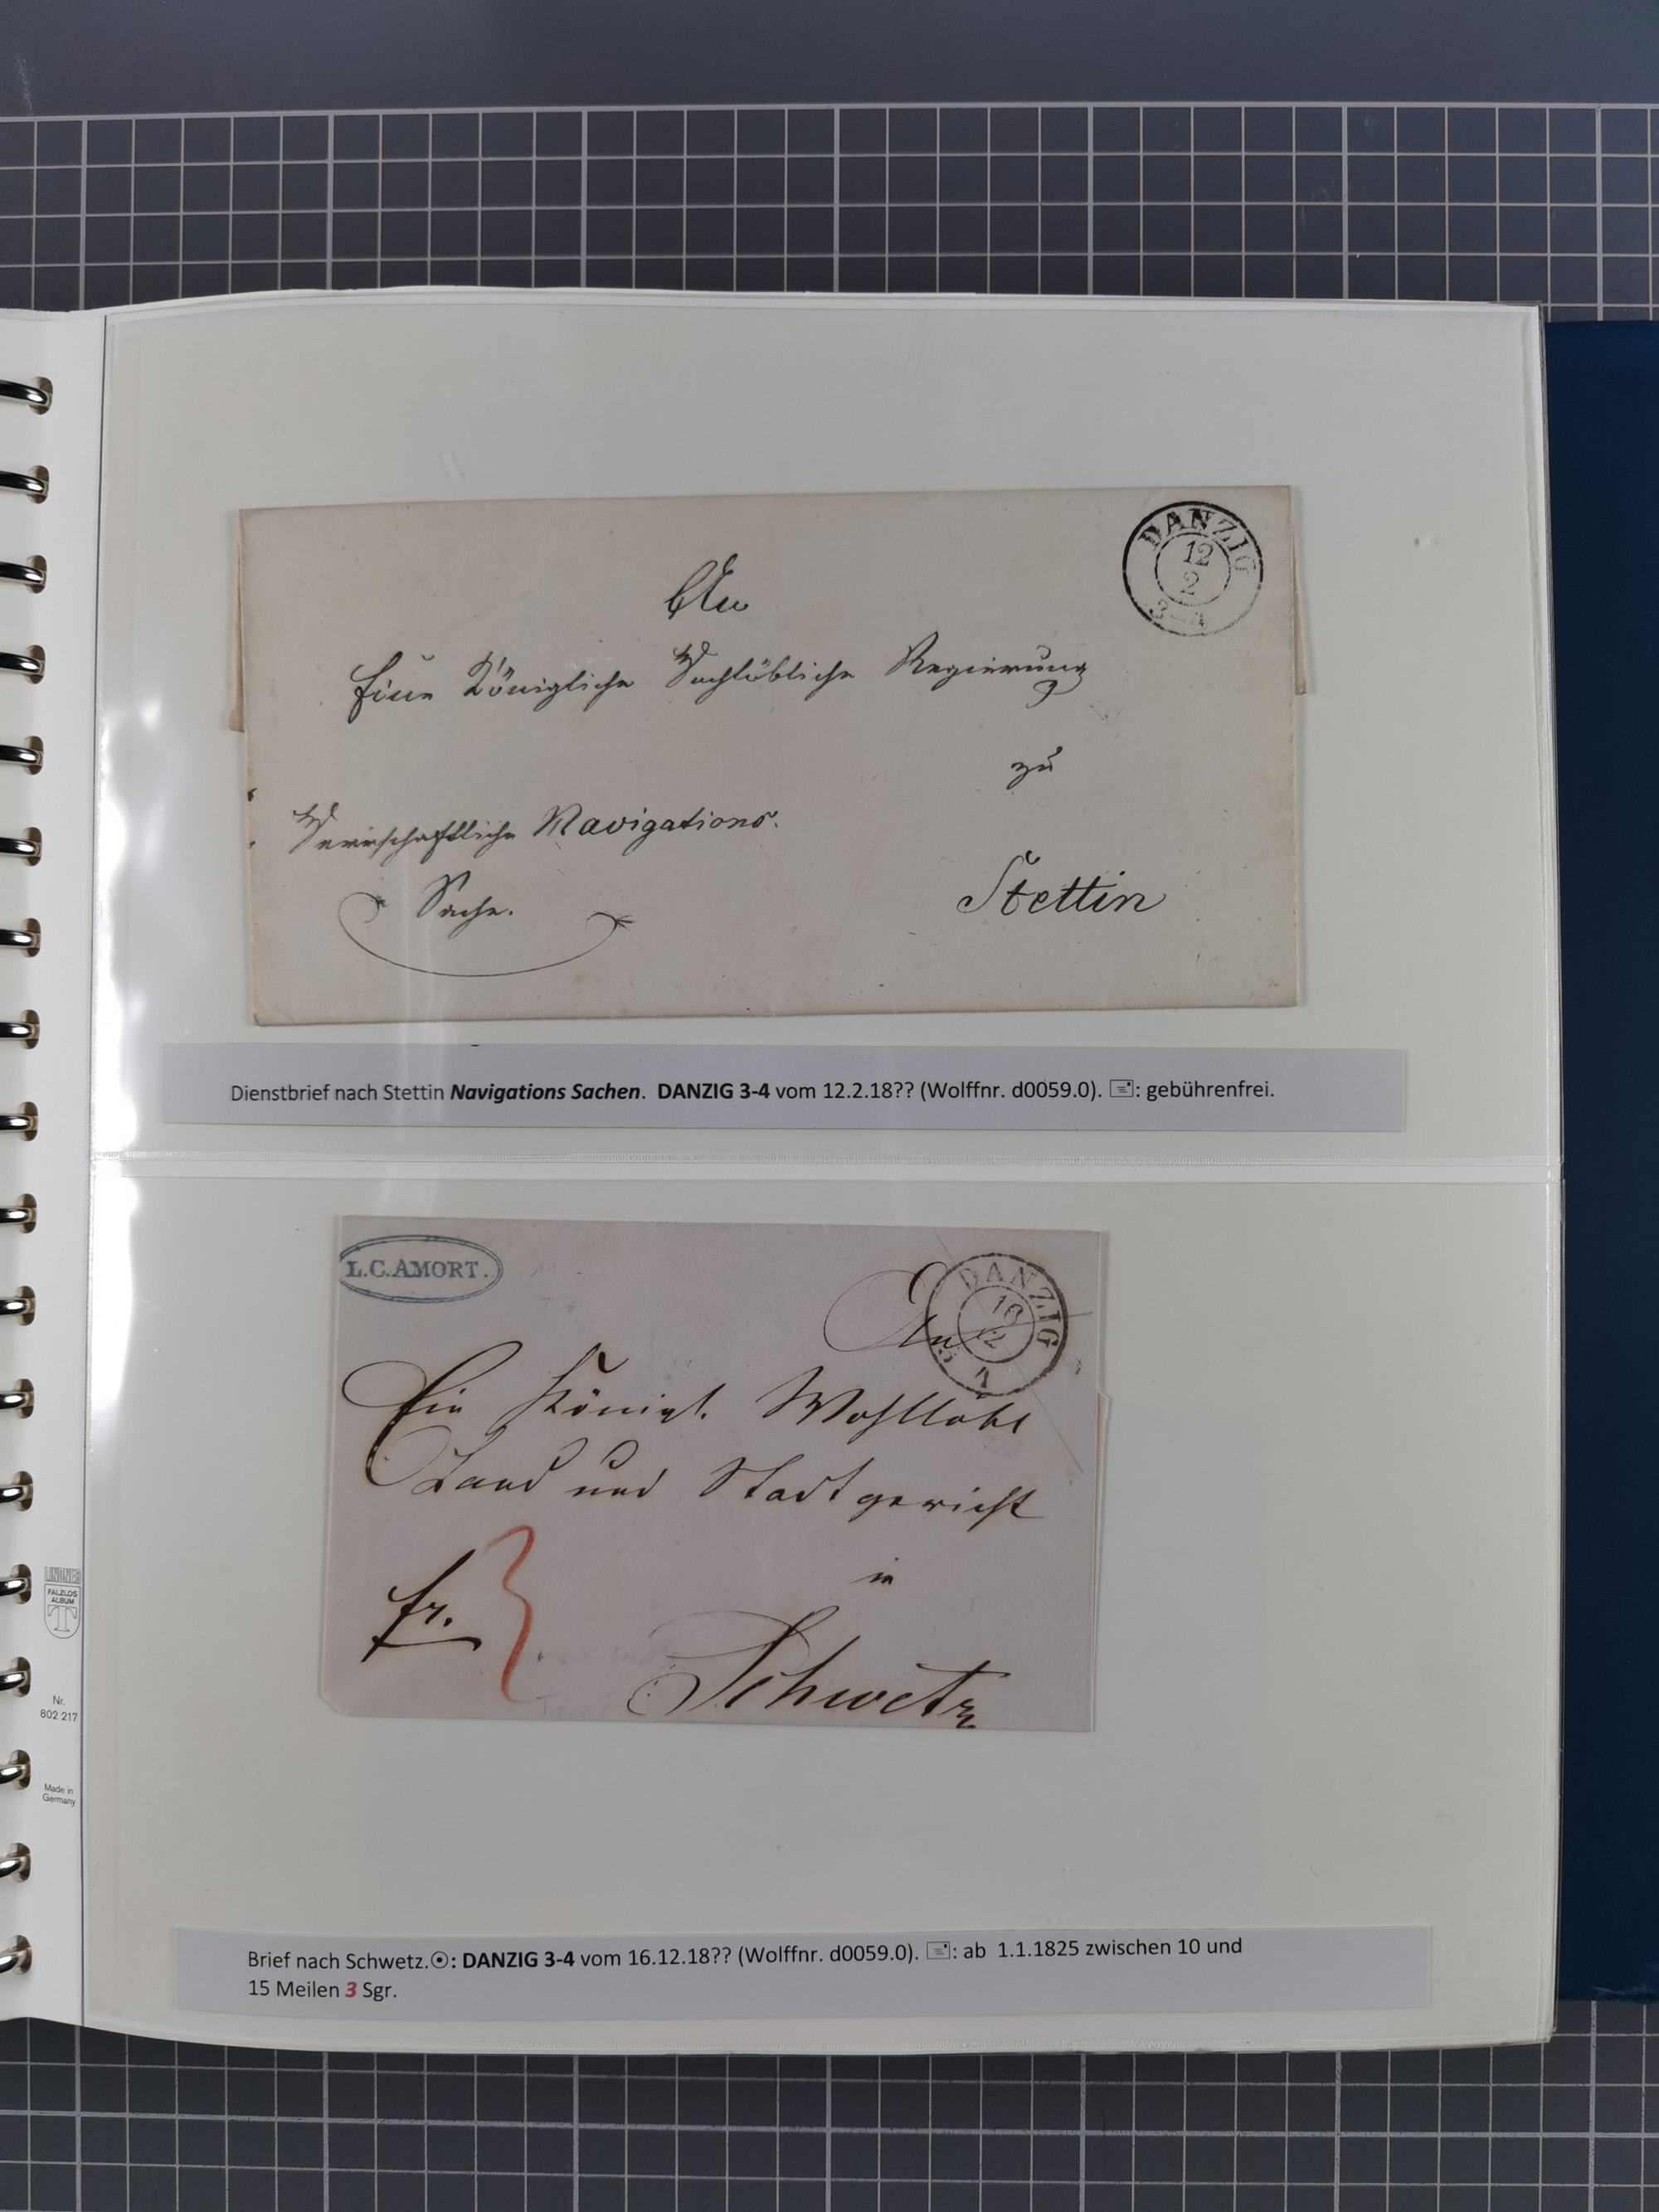 DANZIG
12
2
3-4
An
Eine Königliche Hochlöbliche Regierung
zu
Herrschaftliche Navigations.
Sache.
Stettin
Dienstbrief nach Stettin Navigations Sachen. DANZIG 3-4 vom 12.2.18?? (Wolffnr. d0059.0). : gebührenfrei.
L.C.AMORT.
DANZIG
16
12
3 4
An
Ein Königl. Wohllöbl
Land und Stadtgericht
in
fr. 3
Schwetz
Brief nach Schwetz.☉: DANZIG 3-4 vom 16.12.18?? (Wolffnr. d0059.0). : ab 1.1.1825 zwischen 10 und
15 Meilen 3 Sgr.
LINDNER
FALZLOS
ALBUM
T
Nr.
802 217
Made in
Germany